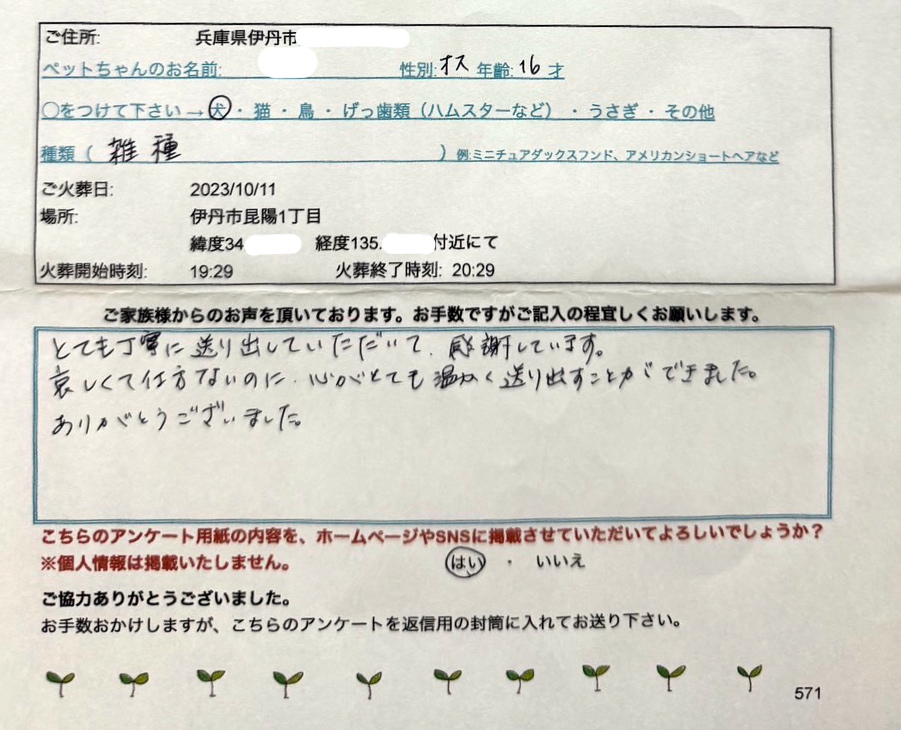 ご住所: 兵庫県伊丹市
ペットちゃんのお名前: 性別:オス 年齢:16 才
○をつけて下さい→犬・猫・鳥・げっ歯類(ハムスターなど)・うさぎ・その他
種類( 雑種 )例:ミニチュアダックスフンド、アメリカンショートヘアなど
ご火葬日: 2023/10/11
場所: 伊丹市昆陽1丁目
緯度34 経度135. 付近にて
火葬開始時刻: 19:29 火葬終了時刻: 20:29
ご家族様からのお声を頂いております。お手数ですがご記入の程宜しくお願いします。
とても丁寧に送り出していただいて、感謝しています。
哀しくて仕方ないのに、心がとても温かく送り出すことができました。
ありがとうございました。
こちらのアンケート用紙の内容を、ホームページやSNSに掲載させていただいてよろしいでしょうか?
※個人情報は掲載いたしません。 はい ・ いいえ
ご協力ありがとうございました。
お手数おかけしますが、こちらのアンケートを返信用の封筒に入れてお送り下さい。
571